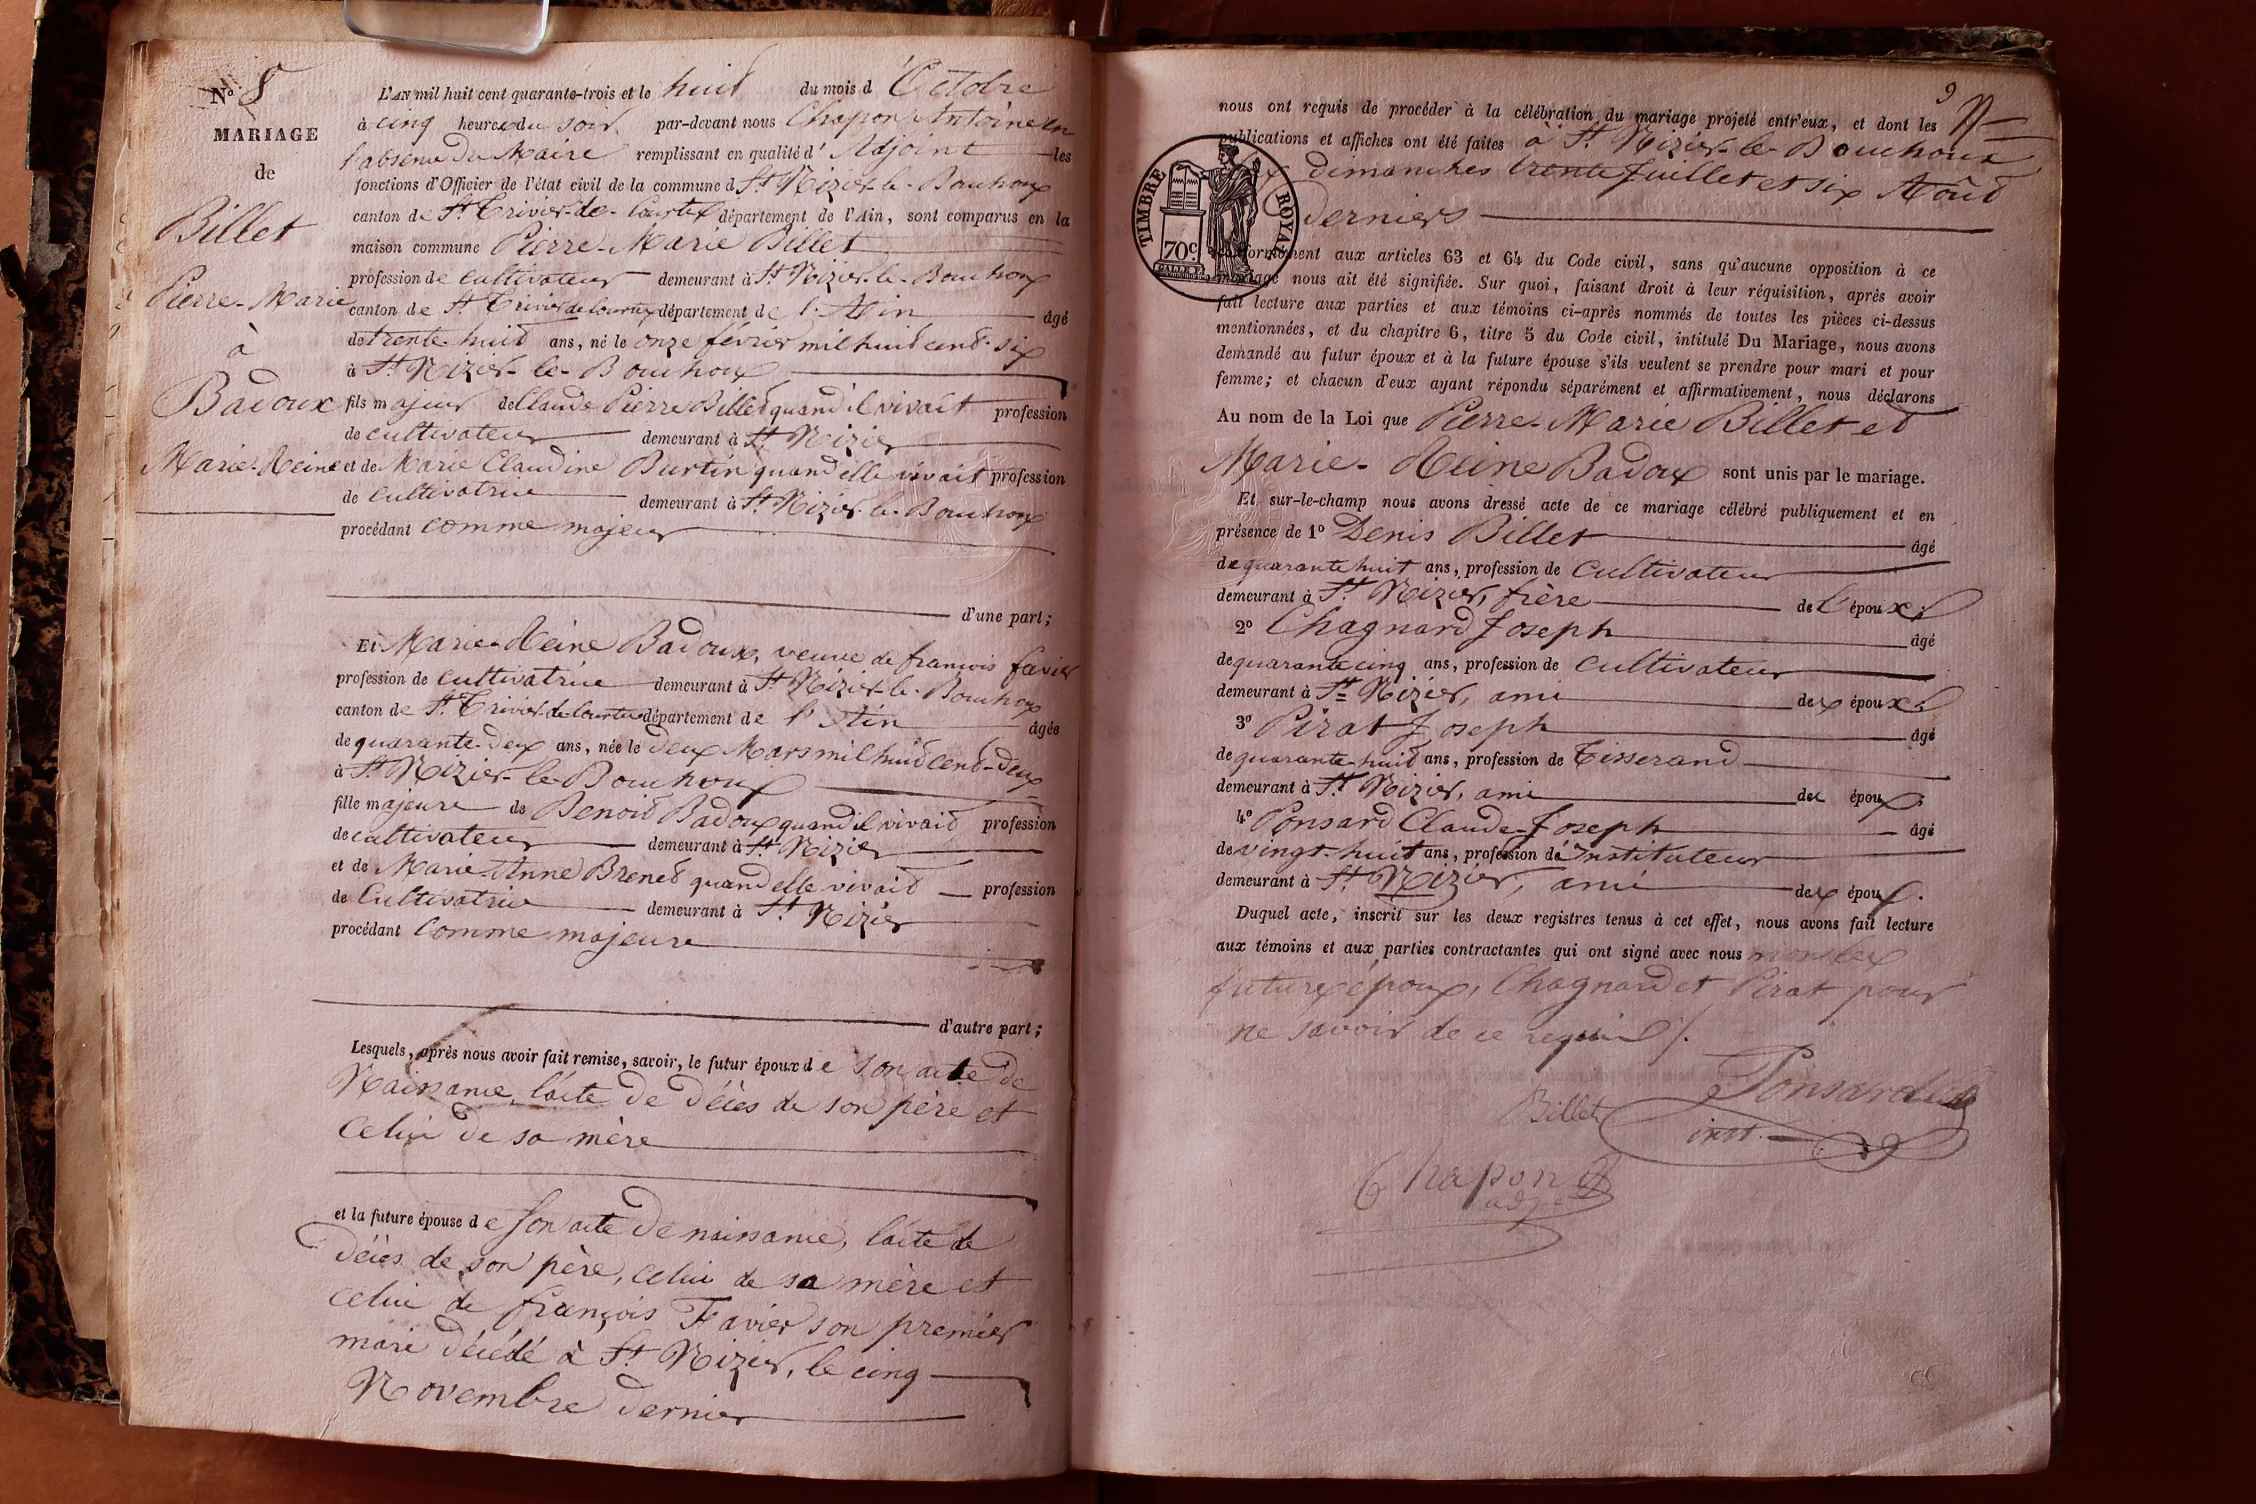 N° 8
MARIAGE
de
Billet
Pierre-Marie
à
Badoux
Marie-Reine
L'AN mil huit cent quarante-trois et le huit du mois d'Octobre
à cinq heures du soir par-devant nous Chapon Antoine en
l'absence du Maire remplissant en qualité d'Adjoint les
fonctions d'Officier de l'état civil de la commune d St Nizier-le-Bouchoux
canton de St Trivier-de-Courtes département de l'Ain, sont comparus en la
maison commune Pierre-Marie Billet
profession de cultivateur demeurant à St Nizier-le-Bouchoux
canton de St Trivier de Courtes département de l'Ain âgé
de trente-huit ans, né le onze février mil huit cent-six
à St Nizier-le-Bouchoux
fils majeur de Claude Pierre Billet quand il vivait profession
de cultivateur demeurant à St Nizier
et de Marie Claudine Burtin quand elle vivait profession
de cultivatrice demeurant à St Nizier-le-Bouchoux
procédant comme majeur
d'une part;
Et Marie-Reine Badoux, veuve de françois favier
profession de cultivatrice demeurant à St Nizier-le-Bouchoux
canton de St Trivier-de-Courtes département de l'Ain âgée
de quarante-deux ans, née le deux Mars mil huit cent-deux
à St Nizier-le-Bouchoux
fille majeure de Benoit Badoux quand il vivait profession
de cultivateur demeurant à St Nizier
et de Marie-Anne Brenet quand elle vivait profession
de Cultivatrice demeurant à St Nizier
procédant Comme majeure
d'autre part;
Lesquels, après nous avoir fait remise, savoir, le futur époux de son acte de
Naissance, l'acte de décès de son père et
Celui de sa mère
et la future épouse de son acte de naissance, l'acte de
décès de son père, celui de sa mère et
celui de françois Favier son premier
mari décédé à St Nizier, le cinq
Novembre dernier
9
nous ont requis de procéder à la célébration du mariage projeté entr'eux, et dont les
publications et affiches ont été faites à St Nizier-le-Bouchoux
dimanches trente Juillet et six Août
derniers
TIMBRE ROYAL
70c
conformément aux articles 63 et 64 du Code civil, sans qu'aucune opposition à ce
mariage nous ait été signifiée. Sur quoi, faisant droit à leur réquisition, après avoir
fait lecture aux parties et aux témoins ci-après nommés de toutes les pièces ci-dessus
mentionnées, et du chapitre 6, titre 5 du Code civil, intitulé Du Mariage, nous avons
demandé au futur époux et à la future épouse s'ils veulent se prendre pour mari et pour
femme; et chacun d'eux ayant répondu séparément et affirmativement, nous déclarons
Au nom de la Loi que Pierre-Marie Billet et
Marie-Reine Badoux sont unis par le mariage.
Et sur-le-champ nous avons dressé acte de ce mariage célébré publiquement et en
présence de 1° Denis Billet âgé
de quarante huit ans, profession de Cultivateur
demeurant à St Nizier, frère de l'époux;
2° Chagnard Joseph âgé
de quarante cinq ans, profession de Cultivateur
demeurant à St Nizier, ami des époux;
3° Pirat Joseph âgé
de quarante-huit ans, profession de Tisserand
demeurant à St Nizier, ami des époux;
4° Ponsard Claude-Joseph âgé
de vingt-huit ans, profession d'instituteur
demeurant à St Nizier, ami des époux.
Duquel acte, inscrit sur les deux registres tenus à cet effet, nous avons fait lecture
aux témoins et aux parties contractantes qui ont signé avec nous non les
futurs époux, Chagnard et Pirat pour
ne savoir de ce requis /.
Billet
Ponsard
inst.
Chapon
adj